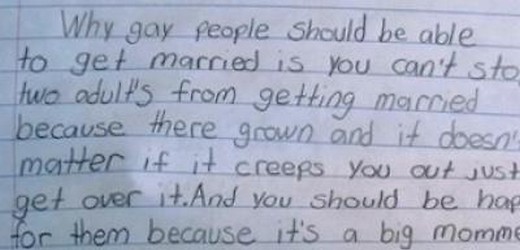 Why gay people should be able
to get married is you can't sto
two adult's from getting married
because there grown and it doesn'
matter if it creeps you out just
get over it. And you should be hap
for them because it's a big momme